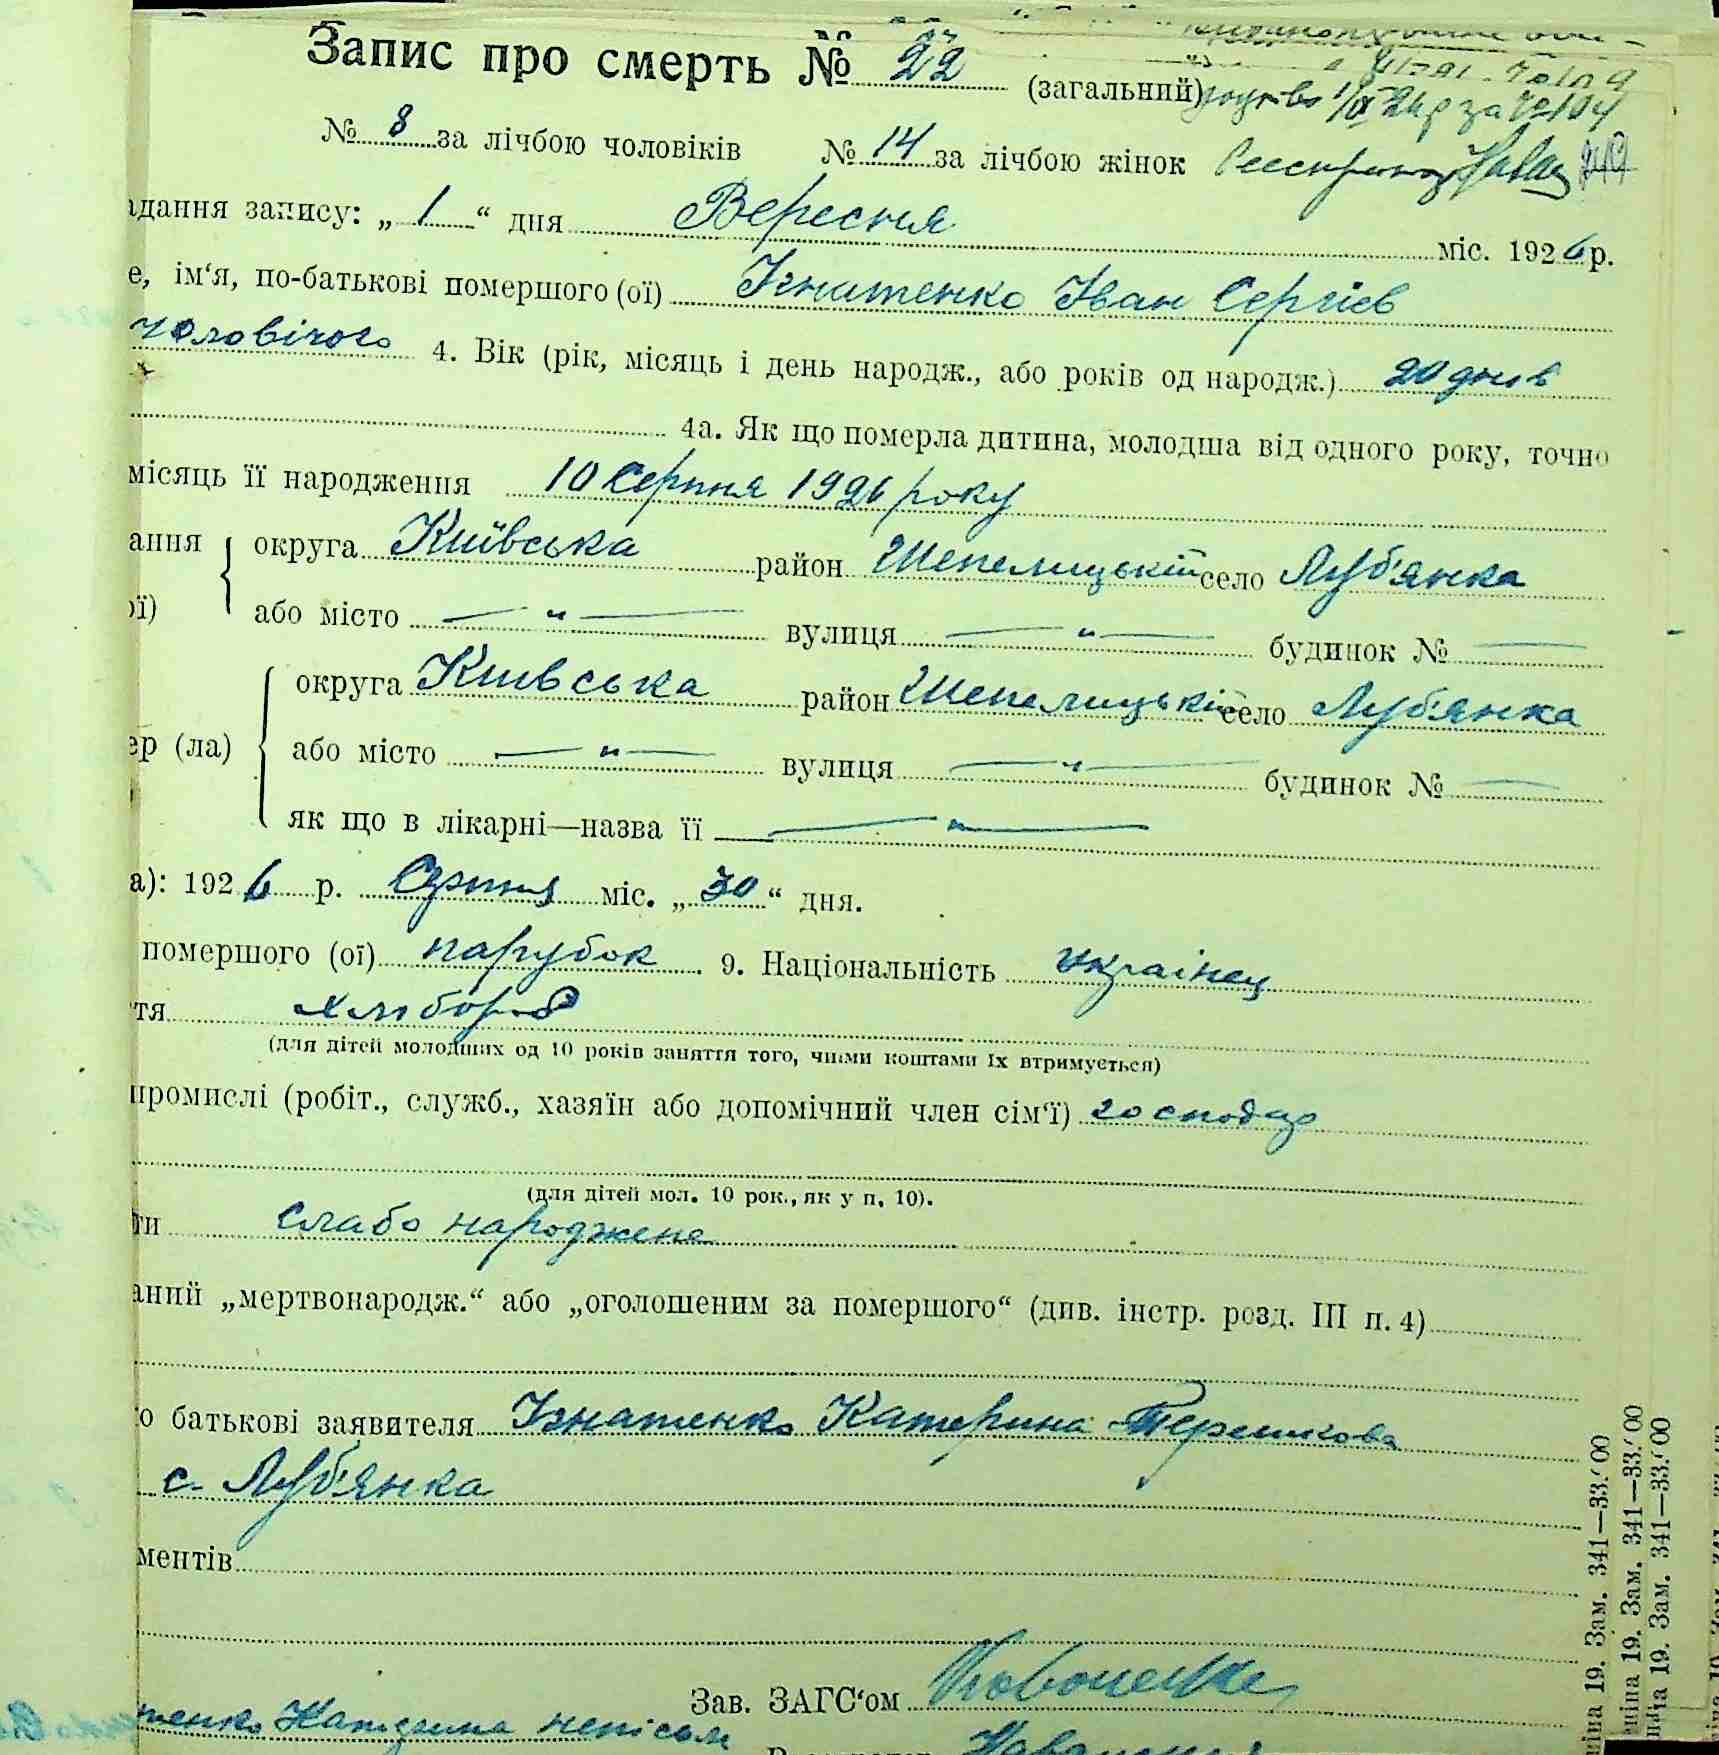 Запис про смерть № 22 (загальний)
№ 8 за лічбою чоловіків № 14 за лічбою жінок
адання запису: „ 1 “ дня Вересня міс. 1926 р.
е, ім‘я, по-батькові помершого (ої) Ігнатенко Іван Сергієв
чоловічого 4. Вік (рік, місяць і день народж., або років од народж.) 20 днів
4а. Як що померла дитина, молодша від одного року, точно
місяць її народження 10 Серпня 1926 року
ання округа Київська район Шепелицький село Луб'янка
ої) або місто — „ — вулиця — „ — будинок № —
округа Київська район Шепелицький село Луб'янка
ер (ла) або місто — „ — вулиця — „ — будинок № —
як що в лікарні—назва її — „ —
а): 1926 р. Серпня міс. „ 30 “ дня.
помершого (ої) парубок 9. Національність українец
тя хлібороб
(для дітей молодших од 10 років заняття того, чиїми коштами їх втримується)
промислі (робіт., служб., хазяїн або допомічний член сім‘ї) господар
(для дітей мол. 10 рок., як у п. 10).
ти Слабо народжене
аний „мертвонародж.“ або „оголошеним за помершого“ (див. інстр. розд. III п. 4)
о батькові заявителя Ігнатенко Катерина Терешкова
с. Луб'янка
ментів
Зав. ЗАГС‘ом
тенко Катерина
ніна 19. Зам. 341—33.000
ніна 19. Зам. 341—33.000
ніна 19. Зам. 341—33.000